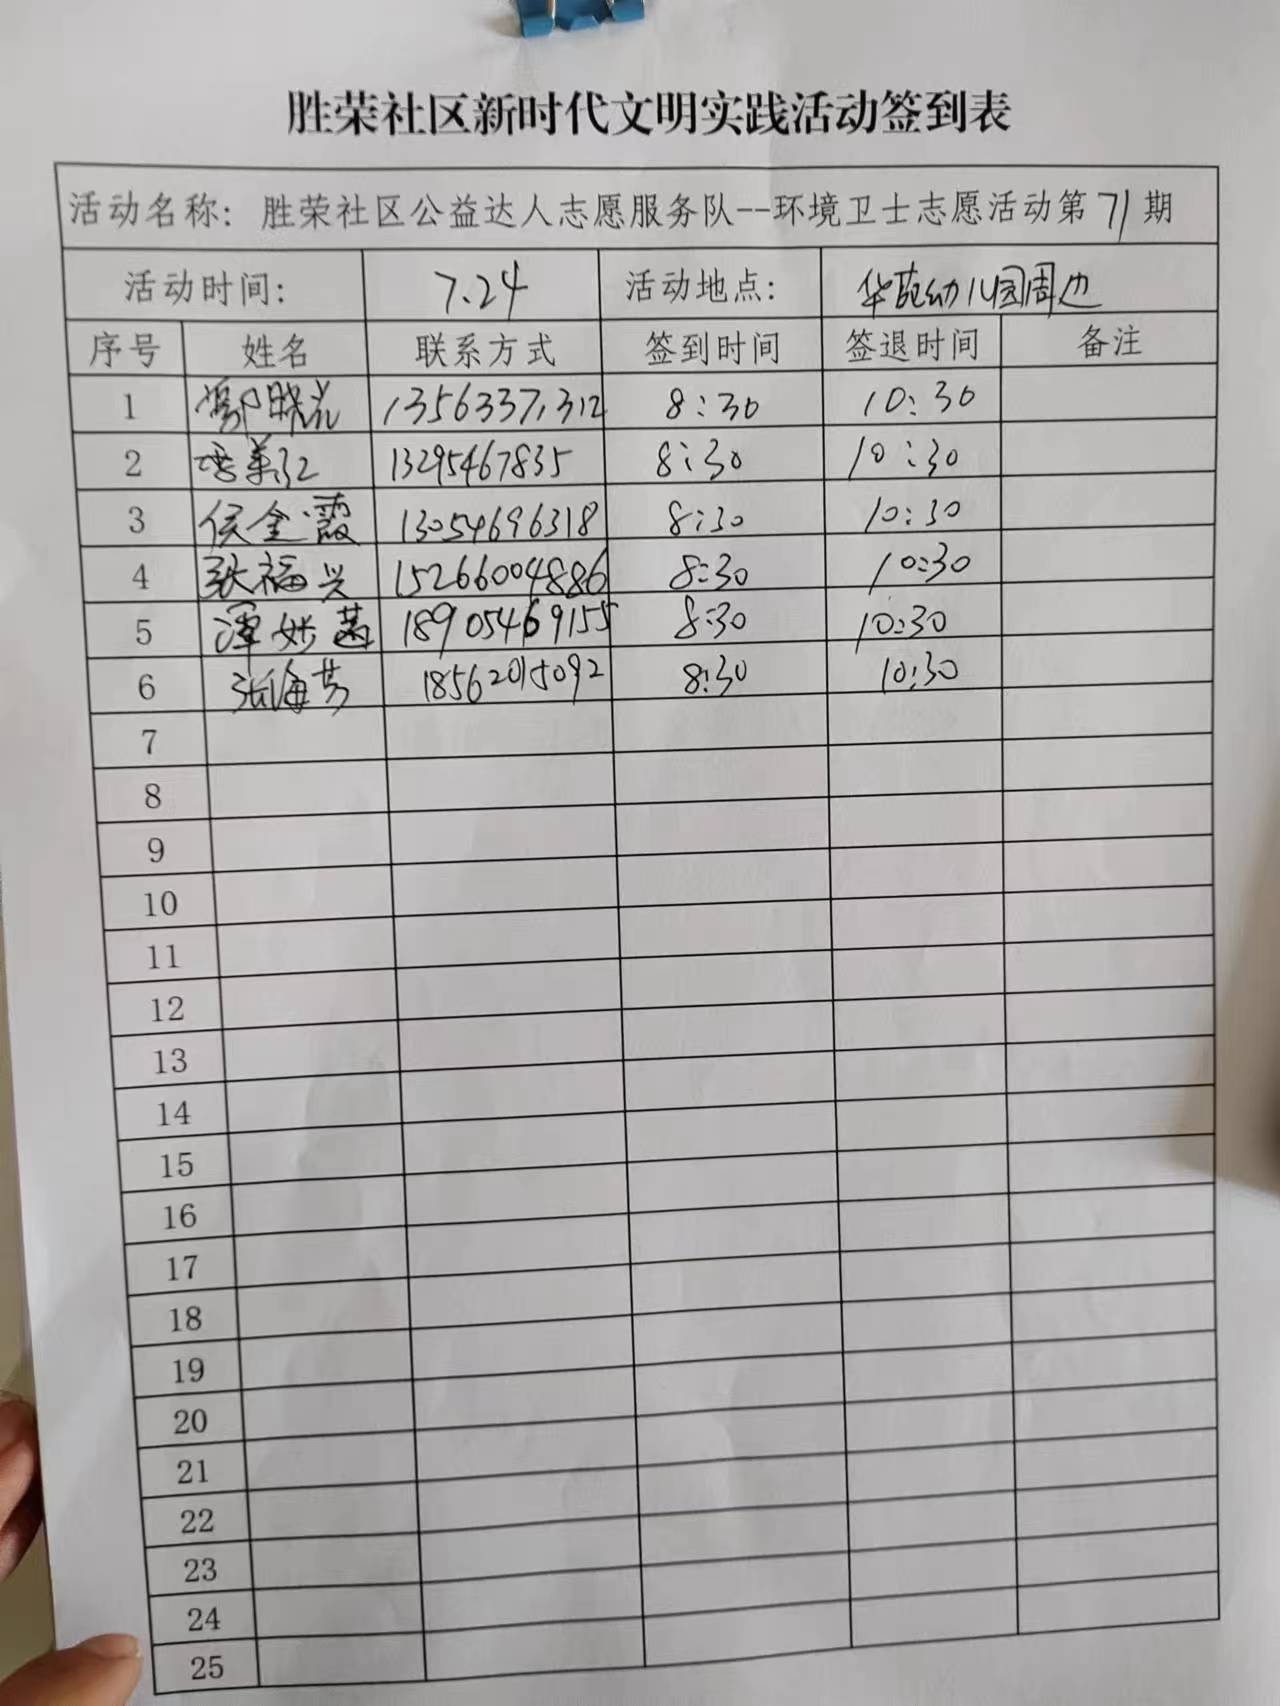 胜荣社区新时代文明实践活动签到表
活动名称：胜荣社区公益达人志愿服务队--环境卫士志愿活动第71期
活动时间： 7.24 活动地点： 华苑幼儿园周边
序号 姓名 联系方式 签到时间 签退时间 备注
1 晓 13563371312 8:30 10:30
2 13295467835 8:30 10:30
3 侯金霞 13054696318 8:30 10:30
4 张福兴 15266004886 8:30 10:30
5 谭妙 18905469155 8:30 10:30
6 张海芳 18562015092 8:30 10:30
7
8
9
10
11
12
13
14
15
16
17
18
19
20
21
22
23
24
25